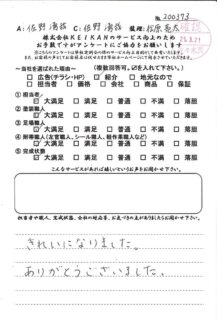 № 200393
A:佐野 C:佐野 整理:松原
株式会社KEIKANのサービス向上のため
お手数ですがアンケートにご協力をお願いします
～当社を選ばれた理由～ (複数回答可。☑を入れて下さい。)
□ 広告(チラシ・HP) ☑ 紹介 □ 地元なので
□ 担当者 □ 価格 □ 会社 □ 商品 □ 保証
① 担当者
☑ 大満足 □ 満足 □ 普通 □ 不満 □ 落胆
② 塗装職人
□ 大満足 □ 満足 □ 普通 □ 不満 □ 落胆
③ 足場職人
□ 大満足 □ 満足 □ 普通 □ 不満 □ 落胆
□ 大満足 □ 満足 □ 普通 □ 不満 □ 落胆
⑤ 完成状態
□ 大満足 □ 満足 □ 普通 □ 不満 □ 落胆
こんなサービスがあれば嬉しいというご要望をお聞かせ下さい。
きれいになりました。
ありがとうございました。